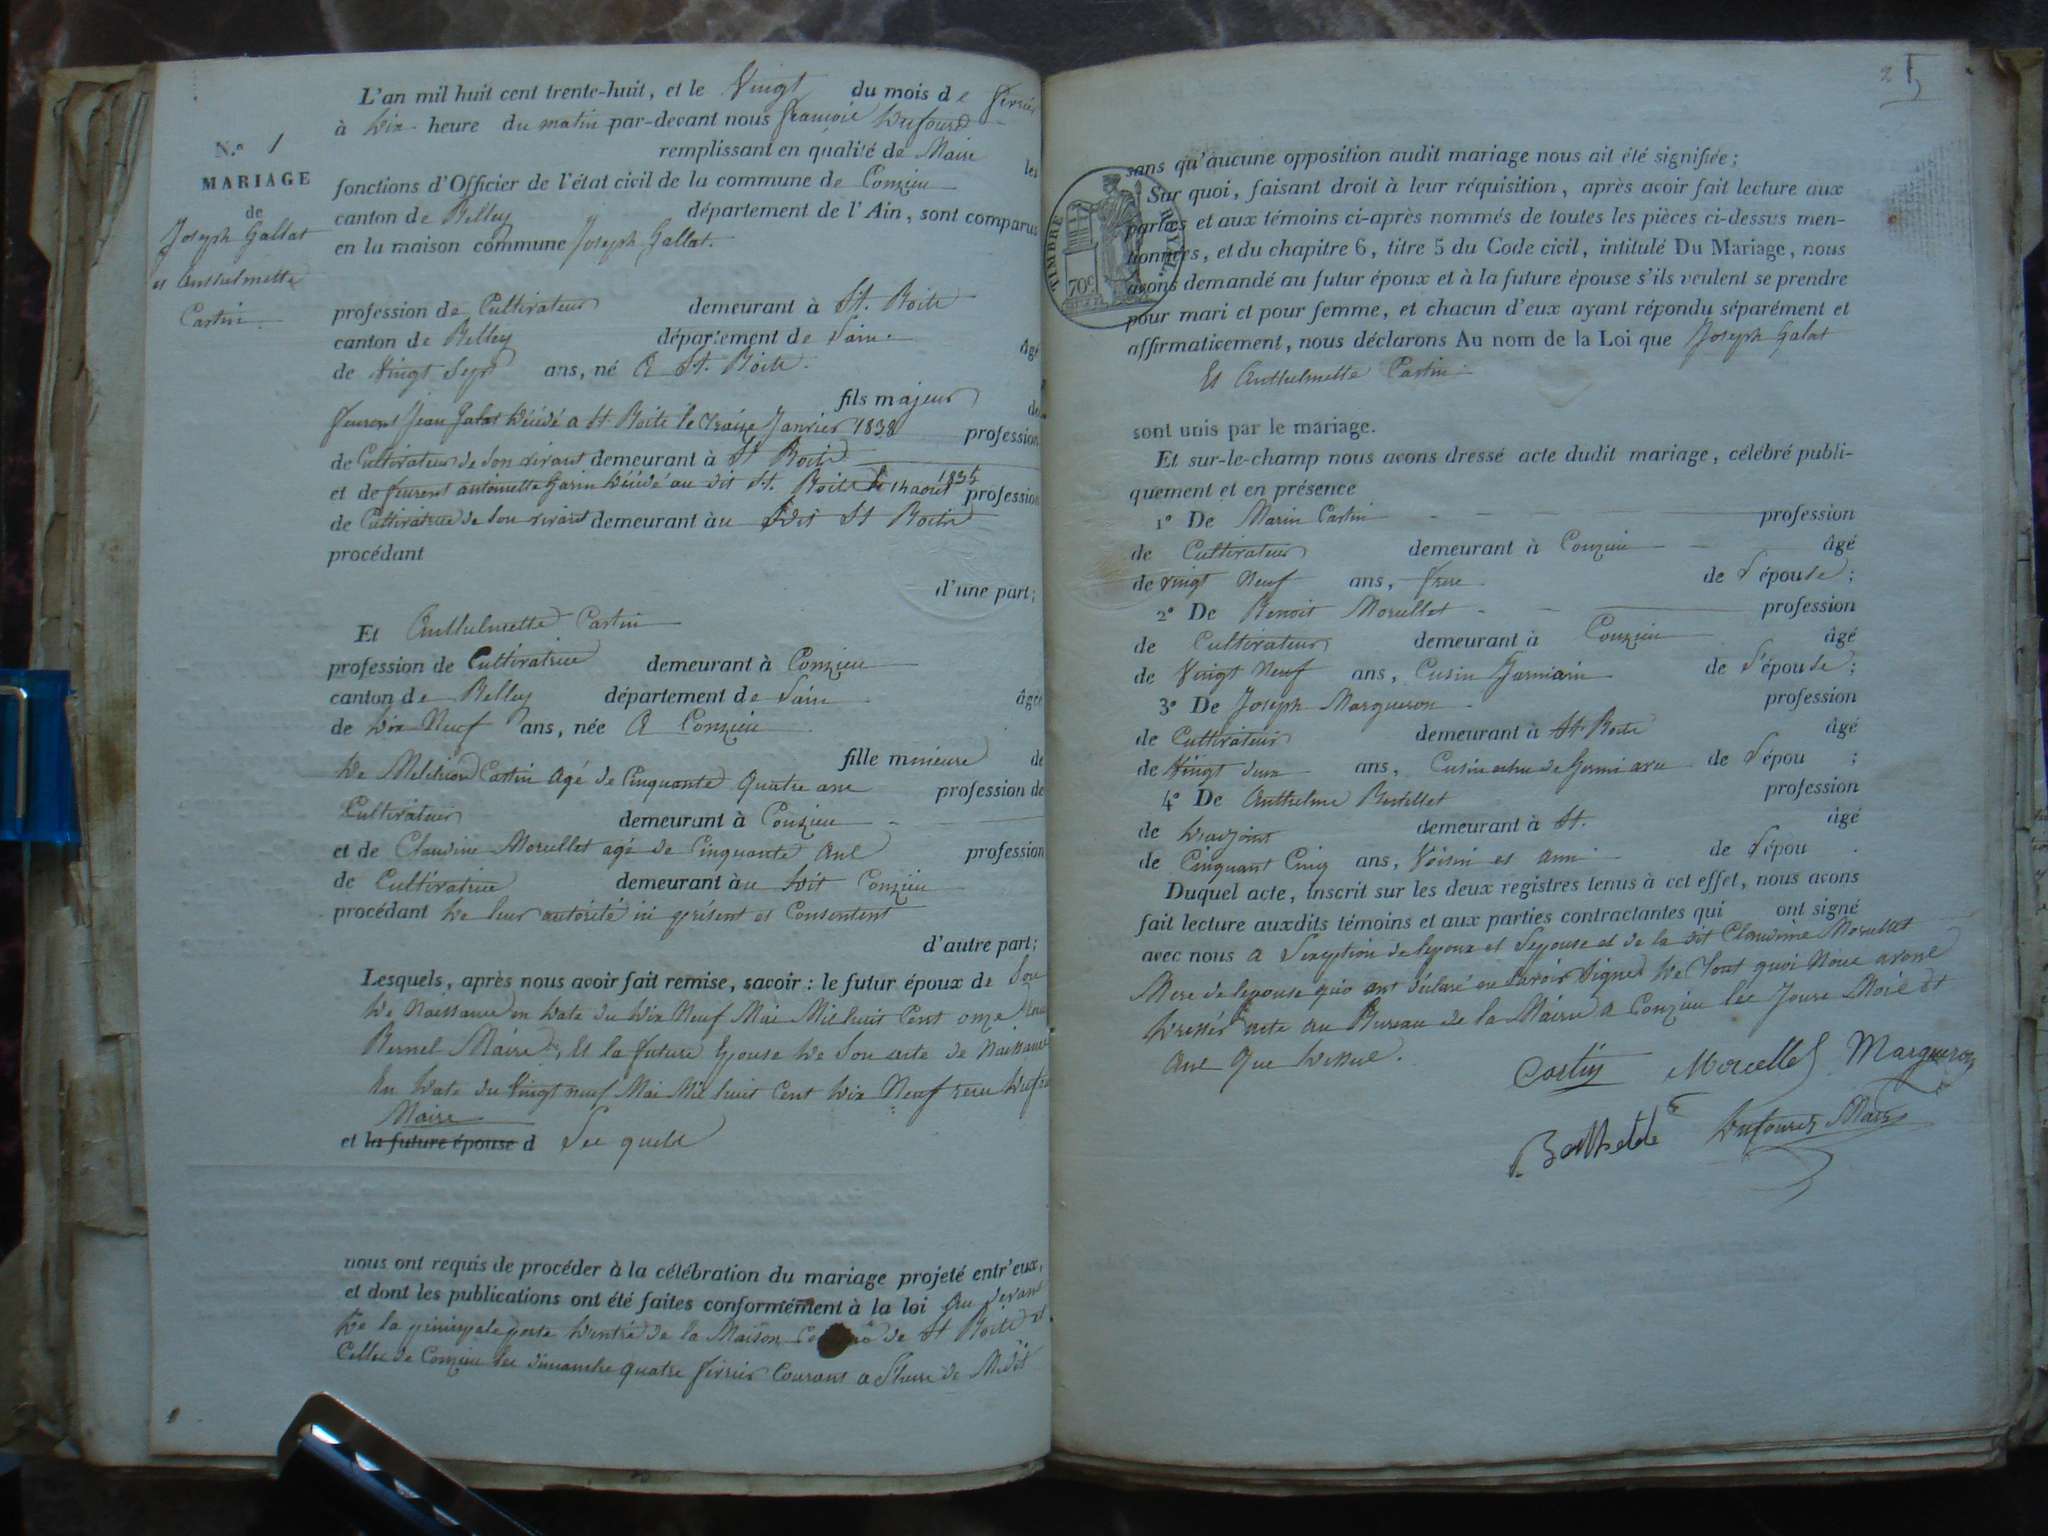 L'an mil huit cent trente-huit, et le Vingt du mois de fevrier
à Dix heure du matin par-devant nous françois Dufourd
remplissant en qualité de Maire les
fonctions d'Officier de l'état civil de la commune de Conzieu
canton de Belley département de l'Ain, sont comparus
en la maison commune Joseph Gallat.
N.o 1
MARIAGE
de
Joseph Gallat
et Anthelmette
Castin
profession de Cultivateur demeurant à St. Boite
canton de Belley département de Lain âgé
de Vingt Sept ans, né A St. Boite.
fils majeur de
feurent Jean Galat Décédé a St Boite le Traize Janvier 1838 profession
de Cultivateur de Son vivant demeurant à St Boite
et de feurent antoinette Garin Décédé au dit St. Boite le 14 aout 1835 profession
de Cultivatrice de Son vivant demeurant àu Dit St Boite
procédant
d'une part;
Et Anthelmette Castin
profession de Cultivatrice demeurant à Conzieu
canton de Belley département de Lain âgée
de Dix Neuf ans, née A Conzieu
fille mineure de
De Melchior Castin Agé de Cinquante Quatre ans profession de
Cultivateur demeurant à Conzieu
et de Claudine Morcellet agé de Cinquante Ans profession
de Cultivatrice demeurant àu Dit Conzieu
procédant De leur autorité ici présent et Consentent
d'autre part;
Lesquels, après nous avoir fait remise, savoir: le futur époux de Son
De Naissance en Date du Dix Neuf Mai Mil huit Cent onze
Bernel Maire, Et la future Epouse De Son acte de Naissance
En Date du Vingt neuf Mai Mil huit Cent Dix Neuf
Maire
et la future épouse d
nous ont requis de procéder à la célébration du mariage projeté entr'eux,
et dont les publications ont été faites conformément à la loi Au devant
De la principale porte Dentré de la Maison de St Boite et
Celle de Conzieu les dimanche quatre fevrier Courant a Lheure de Midi
2
5
sans qu'aucune opposition audit mariage nous ait été signifiée;
Sur quoi, faisant droit à leur réquisition, après avoir fait lecture aux
parties et aux témoins ci-après nommés de toutes les pièces ci-dessus men-
tionnées, et du chapitre 6, titre 5 du Code civil, intitulé Du Mariage, nous
avons demandé au futur époux et à la future épouse s'ils veulent se prendre
pour mari et pour femme, et chacun d'eux ayant répondu séparément et
affirmativement, nous déclarons Au nom de la Loi que Joseph Galat
Et Anthelmette Castin
TIMBRE ROYAL
70c
sont unis par le mariage.
Et sur-le-champ nous avons dressé acte dudit mariage, célébré publi-
quement et en présence
1o De Marin Castin profession
de Cultivateur demeurant à Conzieu âgé
de vingt Neuf ans, frere de l'épouse;
2o De Benoit Morcellet profession
de Cultivateur demeurant à Conzieu âgé
de Vingt Neuf ans, Cusin Jarmain de l'épouse;
3o De Joseph Margueron profession
de Cultivateur demeurant à St. Boite âgé
de Vingt deux ans, Cusin de l'épou ;
4o De Anthelme profession
de demeurant à St. âgé
de Cinquant Cinq ans, Voisin et Ami de l'épou .
Duquel acte, inscrit sur les deux registres tenus à cet effet, nous avons
fait lecture auxdits témoins et aux parties contractantes qui ont signé
avec nous a Lexeption de lepoux et Lepouse et de la dit Claudine Morcellet
Mere de lepouse qui ont déclaré ne Savoir Signer De Tout quoi Nous avons
Dressés acte au Bureau de la Mairie a Conzieu les Jours Mois et
Ans Que Dessus.
Castin Morcellet Margueron
Dufourd Maire